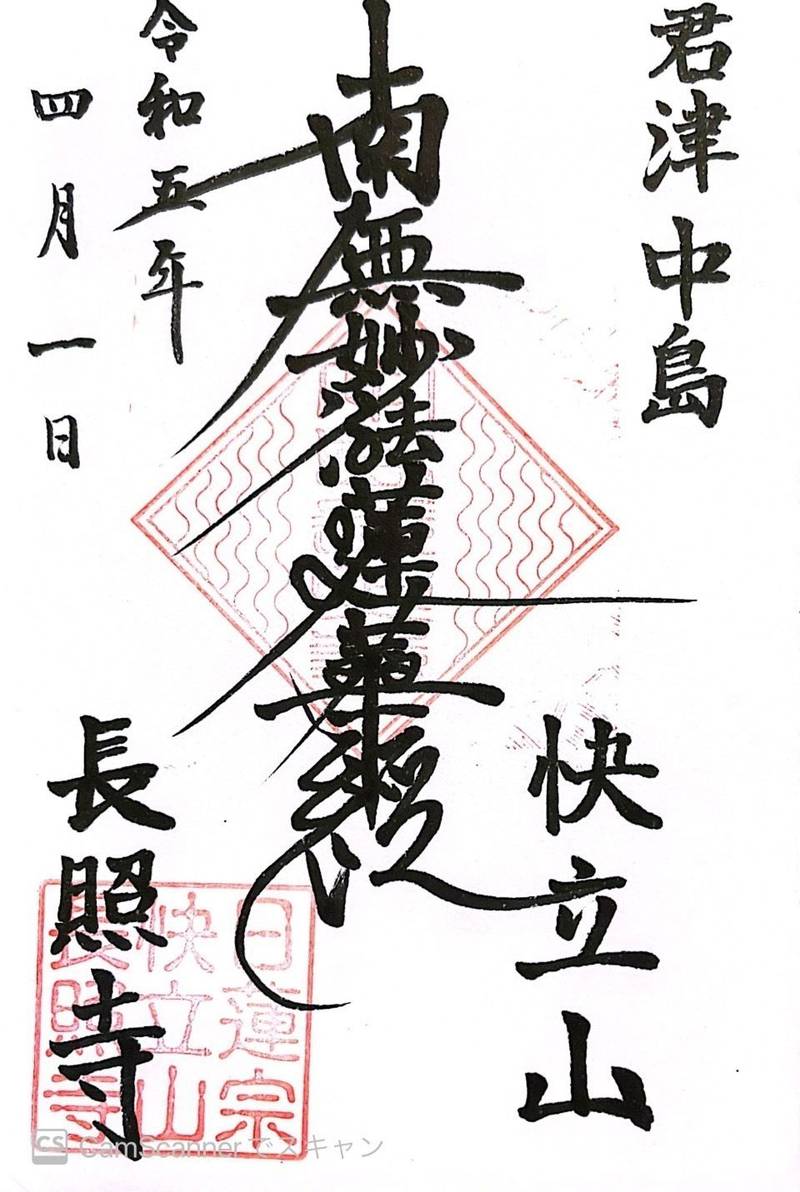 君津中島
快立山
南無妙法蓮華経
令和五年
四月一日
長照寺
日蓮宗
快立山
長照寺
CS CamScanner でスキャン